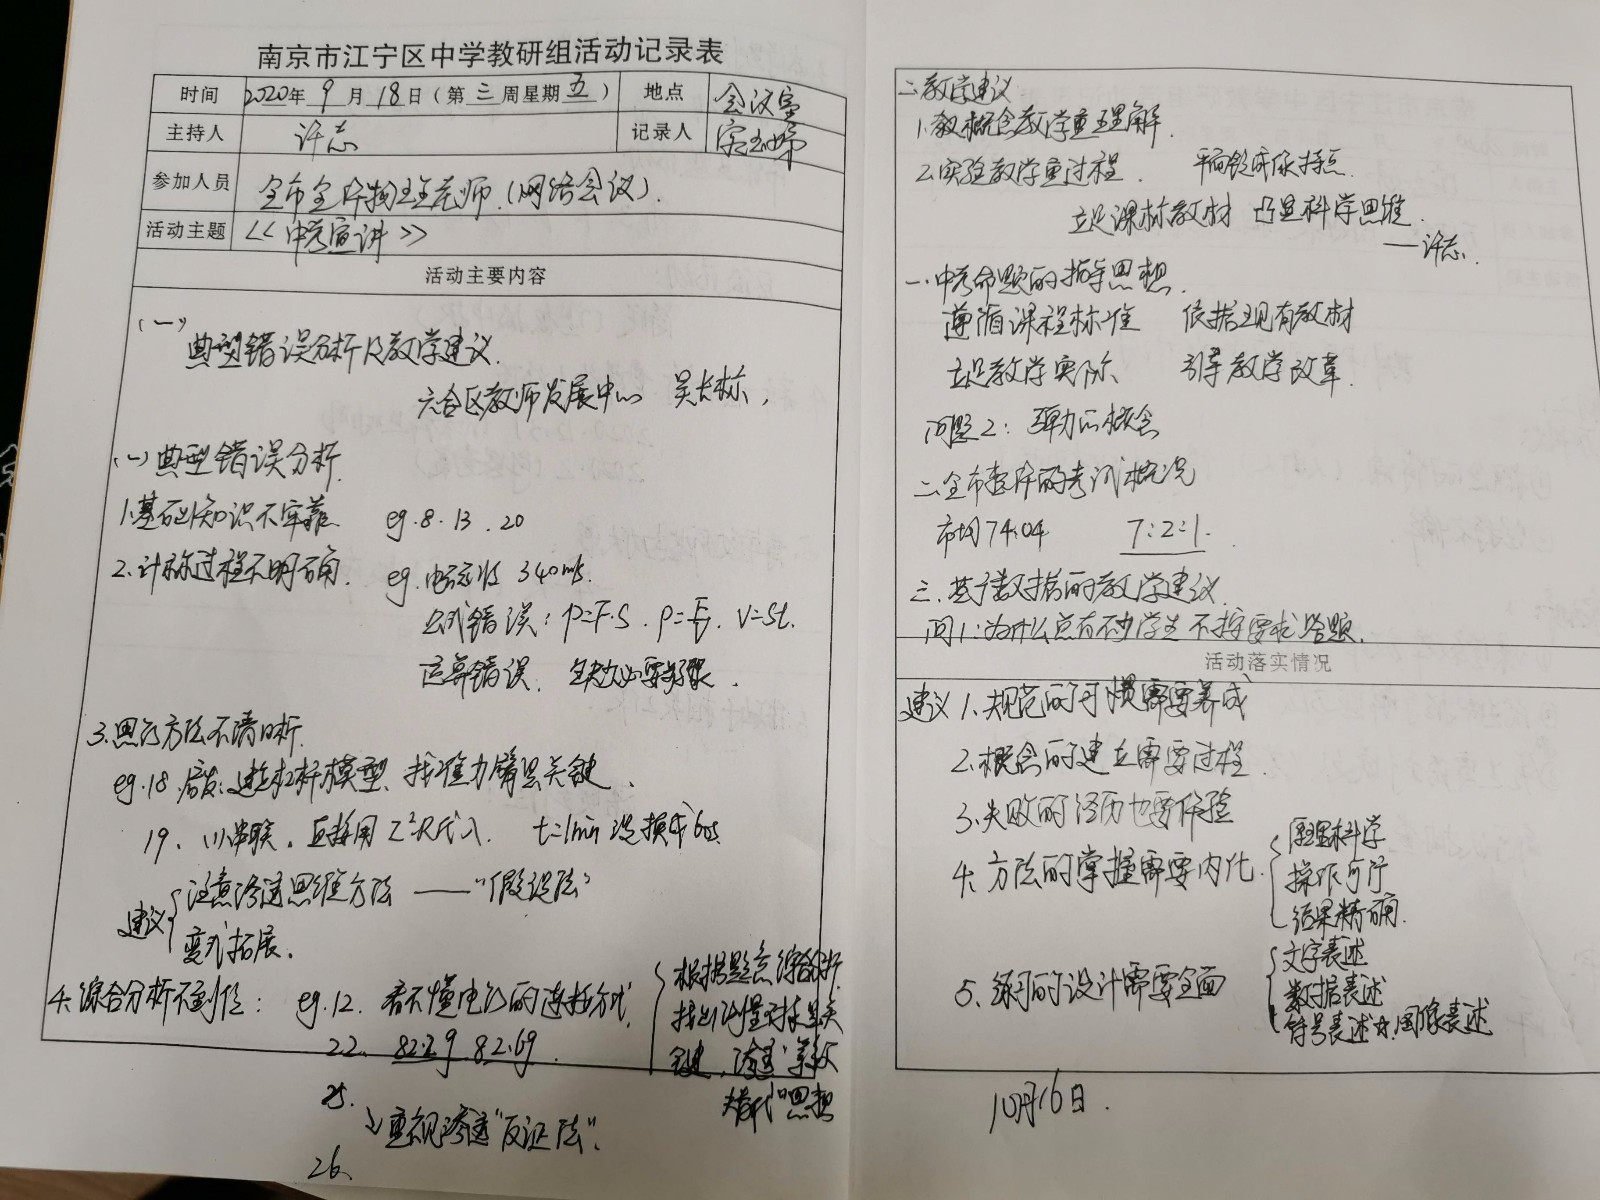 南京市江宁区中学教研组活动记录表
时间 2020年 9 月 18 日（第 三 周星期 五 ） 地点 会议室
主持人 许志 记录人
参加人员 全市全体物理老师.(网络会议).
活动主题 《中考宣讲》
活动主要内容
(一)
典型错误分析及教学建议.
六合区教师发展中心 吴长标,
(一)典型错误分析.
1.基础知识不牢靠 eg.8.13.20
2.计标过程不明确. eg. 340m/s.
公式错误: P=F·S. P= V=St.
运算错误. 缺少必要步骤.
3.思路方法不清晰.
eg.18.启发:建立杠杆模型、找准力臂是关键.
19、 串联.直接用I²R代入. t=1min 没换成60s.
建议 注意渗透思维方法 ——"假设法"
变式拓展.
4.综合分析不到位: eg.12. 看不懂电路的连接方式.
根据题意综合分析.
找出 量对 是关
键,渗透"等效
替代"思想
22. 82.29 82.69.
25.
↘重视渗透"反证法".
26.
二.教学建议
1.教概念教学重理解.
2.实验教学重过程.
立足课标教材 凸显科学思维.
——许志.
一.中考命题的指导思想.
遵循课程标准 依据现有教材
立足教学实际 引导教学改革.
问题2: 弹力的概念
二.全市整体的考试概况
市均74.04 7:2:1.
三.基于数据的教学建议.
问1:为什么总有不少学生不按要求答题.
活动落实情况
建议 1.规范的习惯需要养成
2.概念的建立需要过程.
3.失败的经历也要体验
4.方法的掌握需要内化.
原理科学
操作可行
结果精确.
5.练习的设计需要全面
文字表述
数据表述
符号表述 图像表述
10月16日.